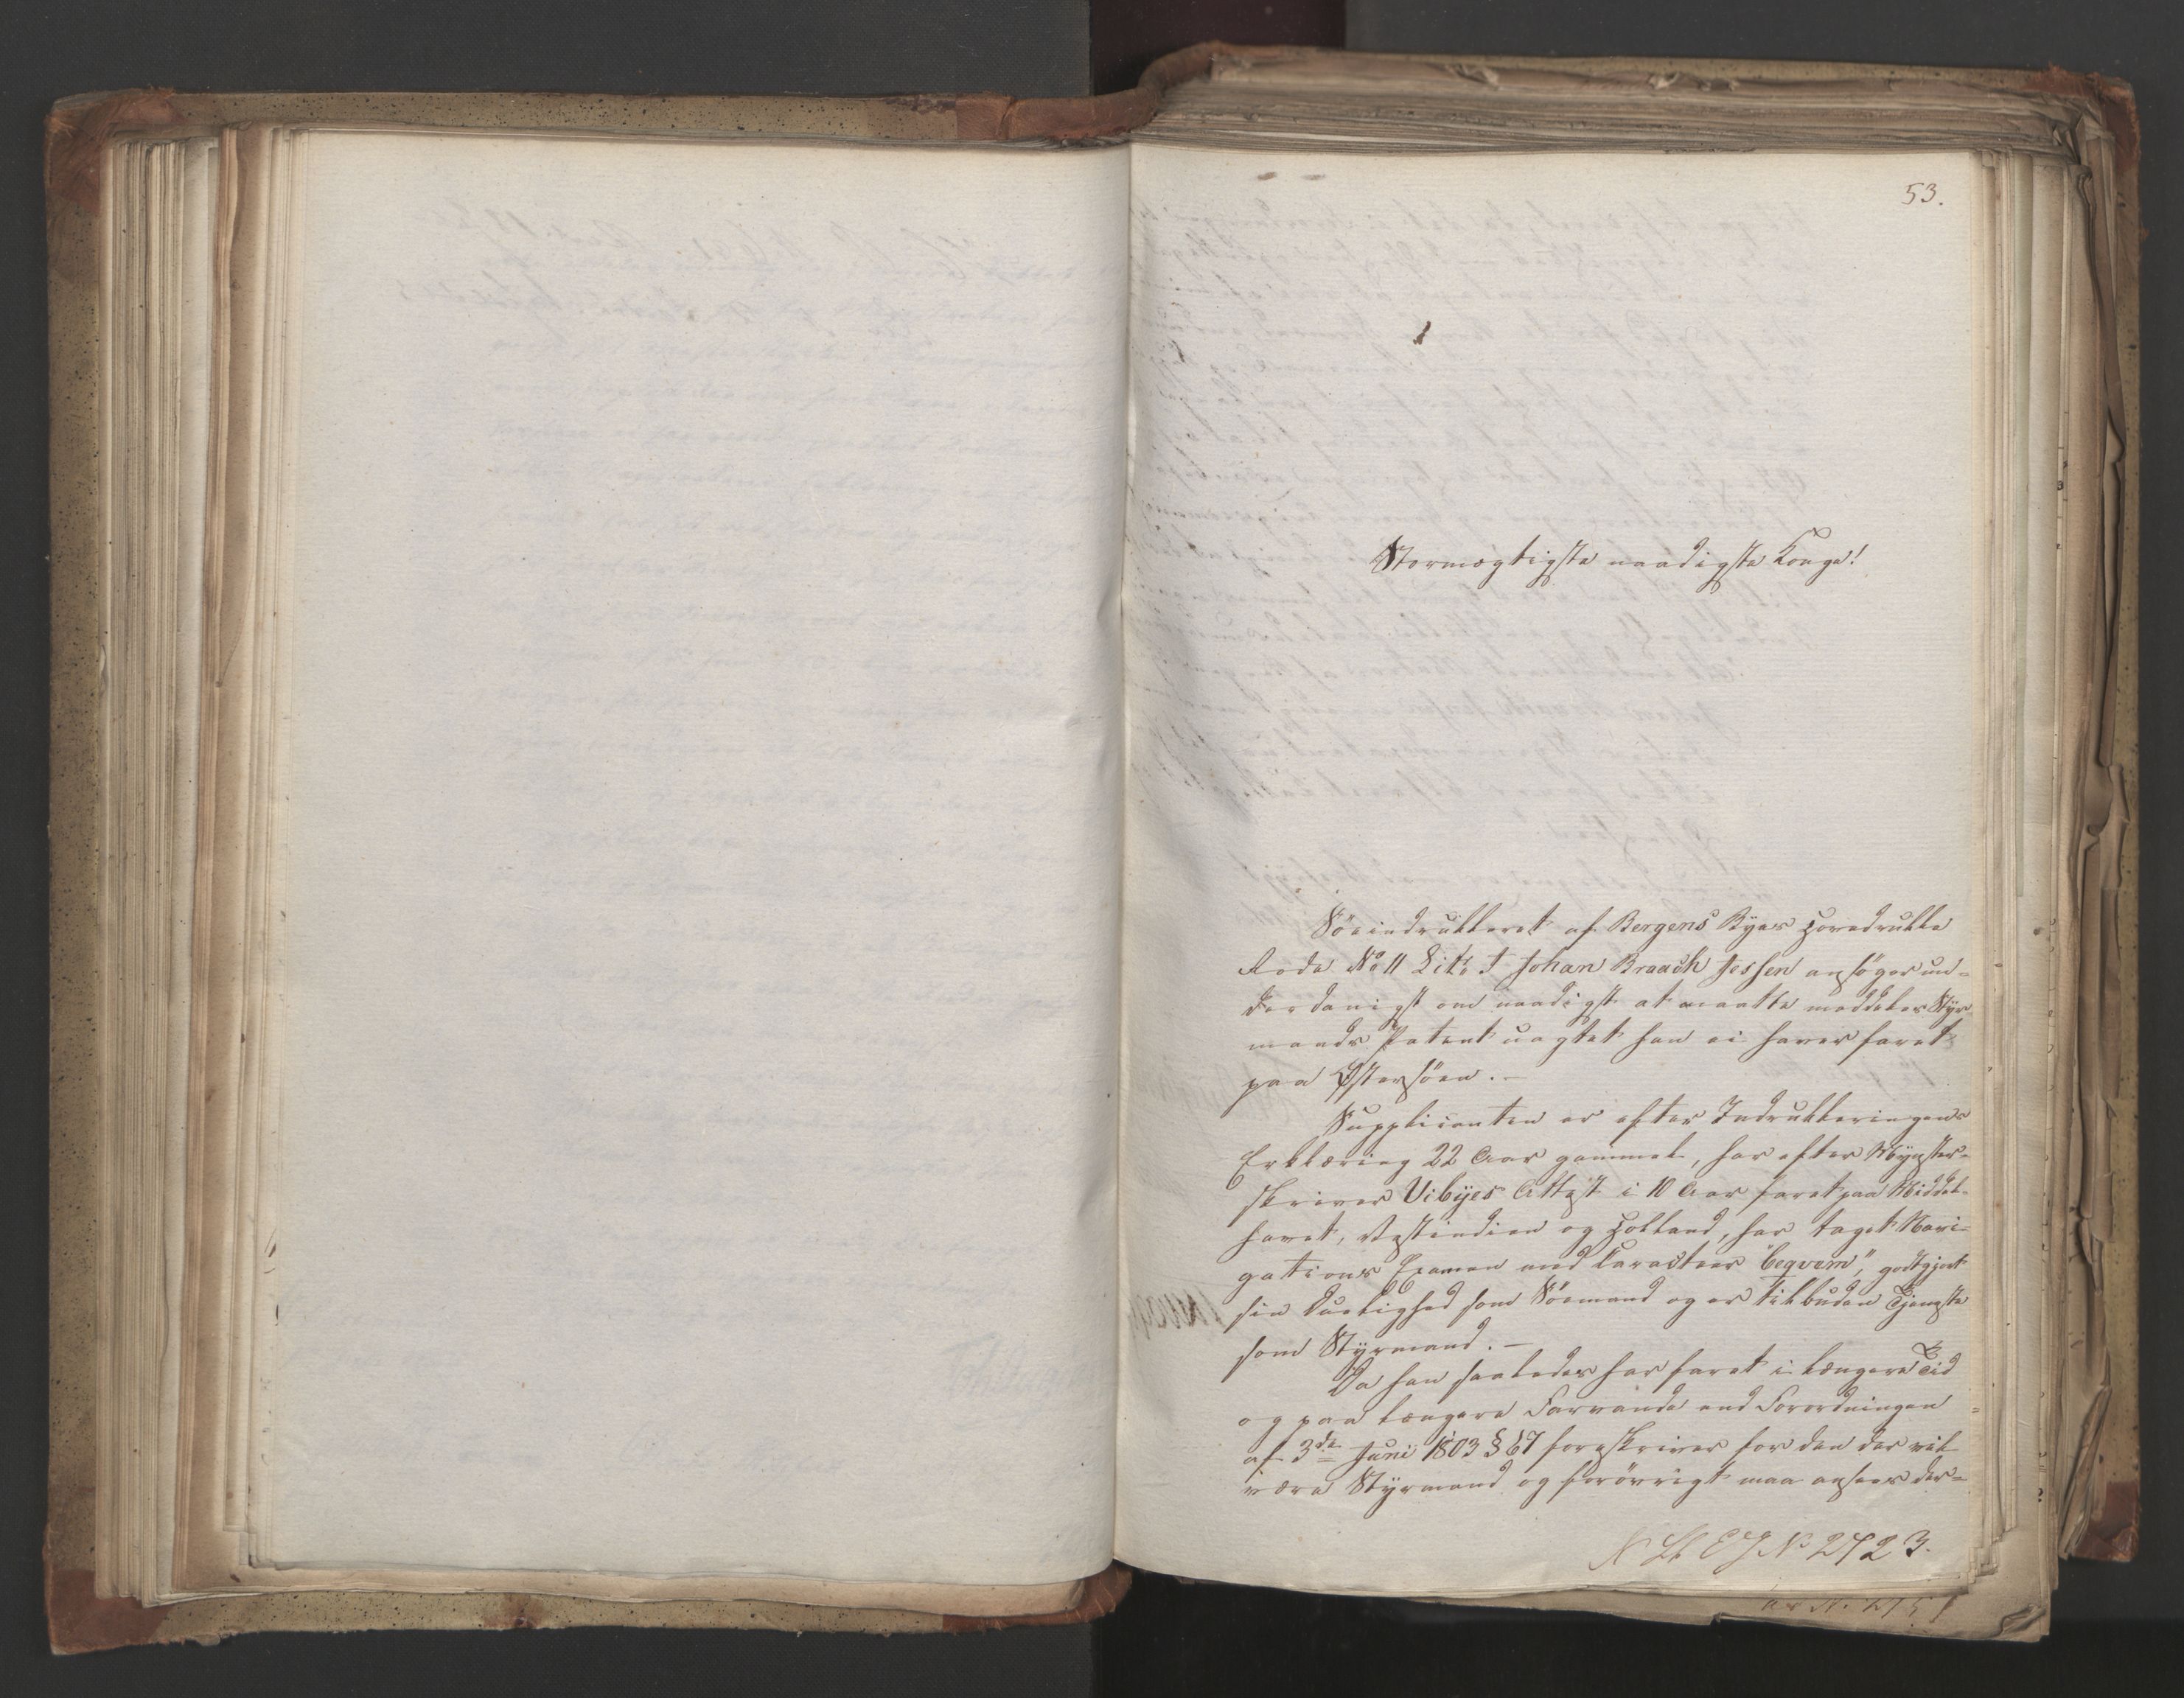 53.
Stormægtigste naadigste Konge!
Söeindrulleret af Bergens Byes Hovedrulle
Rode No 11 Litr. J Johan Braach Jessen ansöger un-
derdanigst om naadigst at maatte meddeles Styr-
mands Patent uagtet han ei haver faret
paa Østersöen. -
Supplicanten er efter Indrulleringens
Erklæring 22 Aar gammel, har efter Mynster-
skriver Vibÿes Attest i 10 Aar faret paa Middel-
havet, Vestindien og Holland, har taget Navi-
gations Examen med Caracteer "beqvem", godtgjort
sin Duelighed som Söemand og er tilbuden Tjeneste
som Styrmand. -
Da han saaledes har faret i længere Tid
og paa længere Farvande end Forordningen
af 3de Juni 1803 § 67 foreskriver for den der vil
være Styrmand og forövrigt maa ansees der-
No 2723.